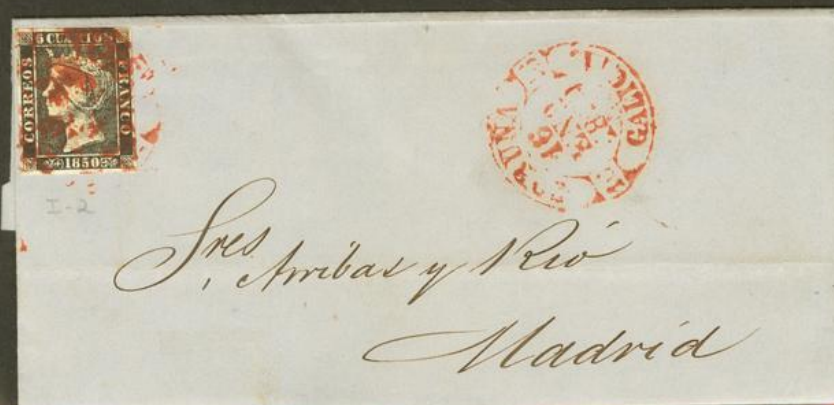 6 CUARTOS
CORREOS
FRANCO
1850
I-2
GALICIA
Sres. Arribas y Rio
Madrid